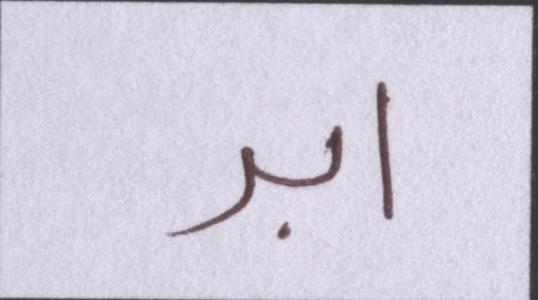 ابر